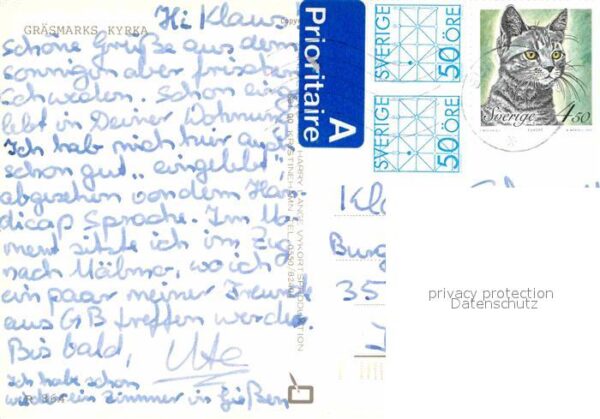 GRÄSMARKS KYRKA
Hi Klaus,
schöne Grüße aus dem
sonnigen aber frischen
Schweden. Schon ein
lebt in Deiner Wohnung
Ich hab mich hier auch
schon gut eingelebt
abgesehen von dem Han-
dicap Sprache. Im Mo-
ment sitze ich im Zug
nach Malmö, wo ich
ein paar meiner Freunde
aus GB treffen werde.
Bis bald, Ute
Ich habe schon
wieder ein Zimmer in Gießen
Prioritaire
A
SVERIGE 50 ÖRE
SVERIGE 50 ÖRE
Sverige 4.50
HARRY VYKORTSPRODUKTION
KRISTINEHAMN TEL. 0550/
Burg
35
privacy protection
Datenschutz